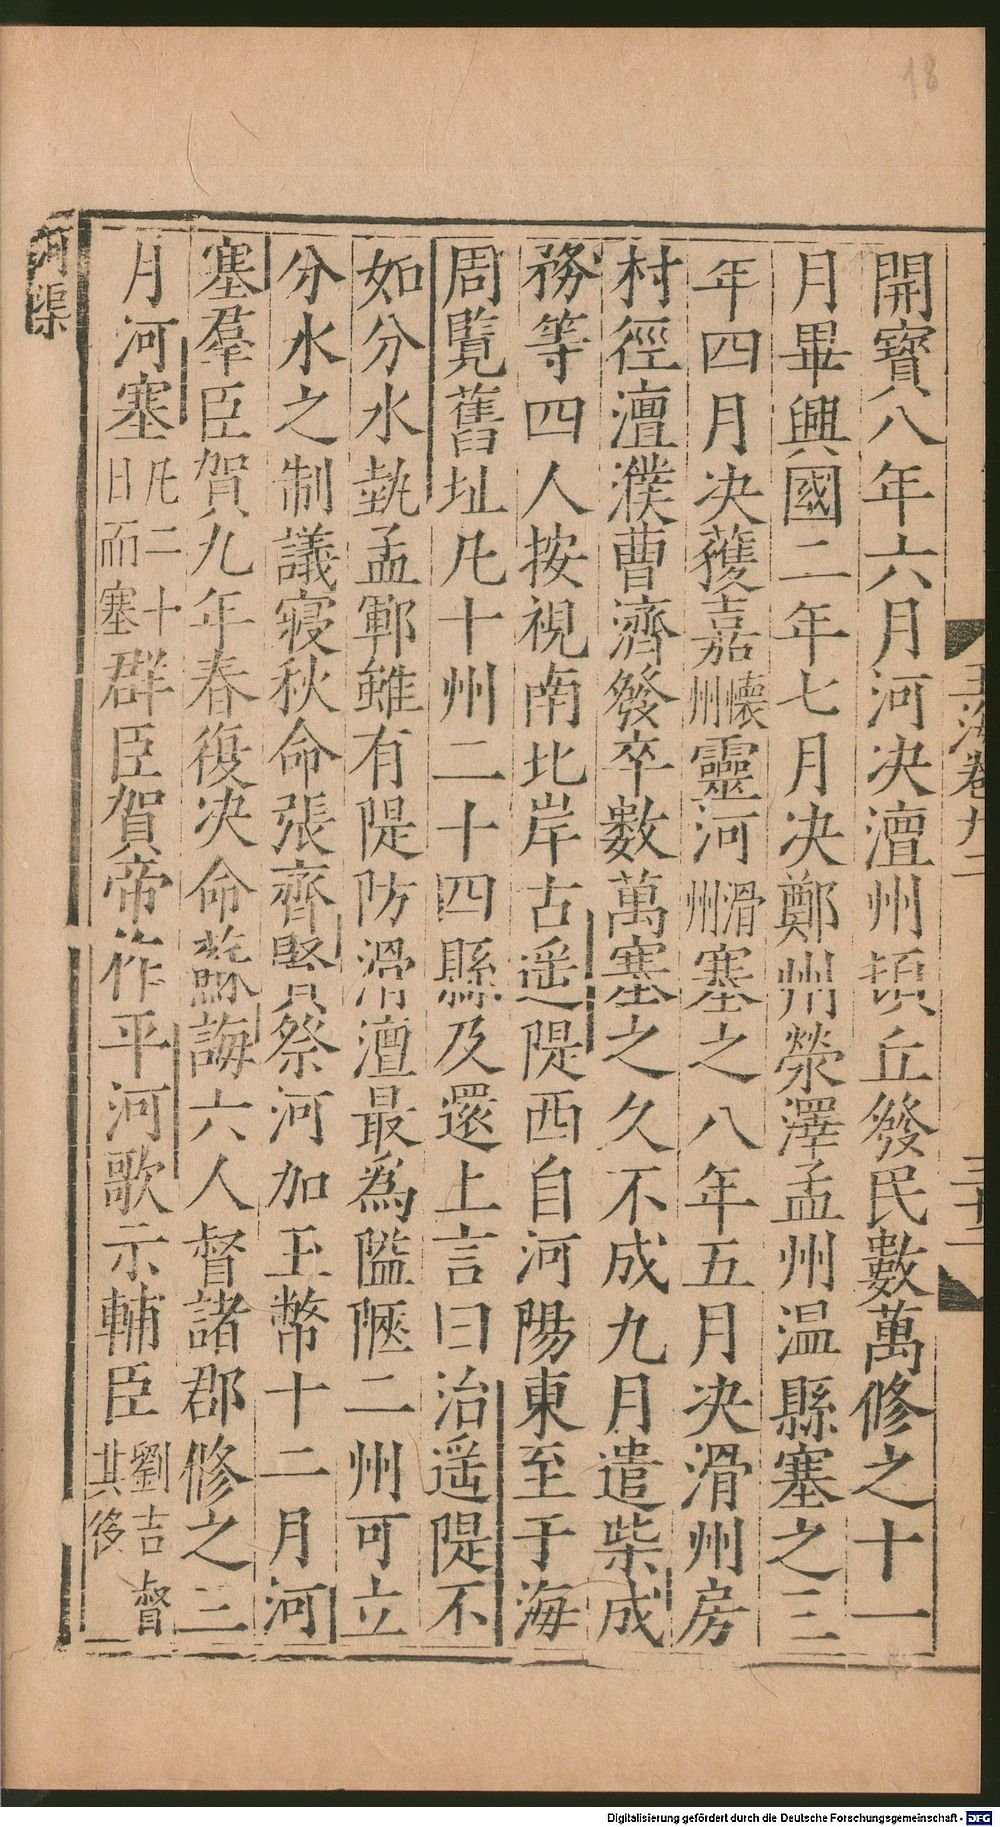 18
玉海卷九二
三十二
開寶八年六月河决澶州頓丘發民數萬修之十一
月畢興國二年七月决鄭州滎澤孟州温縣塞之三
年四月决獲嘉懷州靈河滑州塞之八年五月决滑州房
村徑澶濮曹濟發卒數萬塞之久不成九月遣柴成
務等四人按視南北岸古遥隄西自河陽東至于海
周覽舊址凢十州二十四縣及還上言曰治遥隄不
如分水埶孟鄆雖有隄防滑澶最為隘陿二州可立
分水之制議寑秋命張齊賢祭河加玉幣十二月河
塞羣臣賀九年春復决命蘇誨六人督諸郡修之三
月河塞凢二十日而塞群臣賀帝作平河歌示輔臣劉吉督其役
河渠
Digitalisierung gefördert durch die Deutsche Forschungsgemeinschaft - DFG